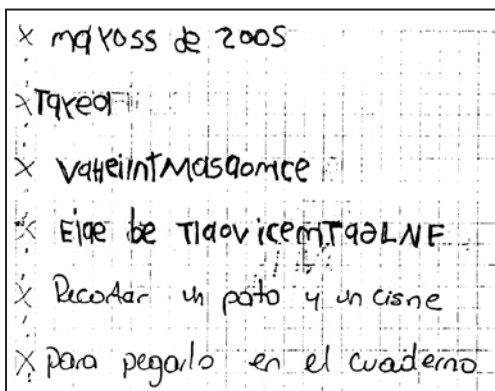 x maYoss de 2005
x Tarea
x VaHeiintMasaomce
x Eiae be TlaovicemTadLNE
x Recortar un pato y un cisne
x para pegarlo en el cuaderno